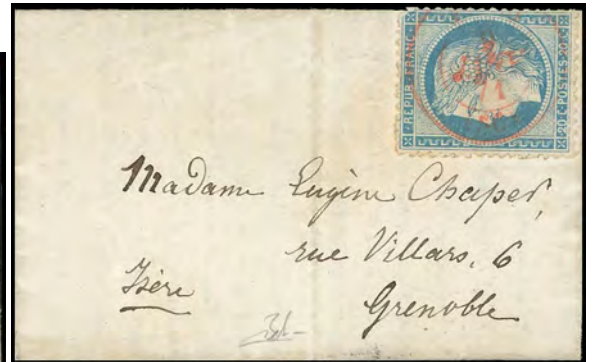 REPUB·FRANC·
20 C·POSTES·20 C
Madame Eugène Chaper,
rue Villars, 6
Isère
Grenoble